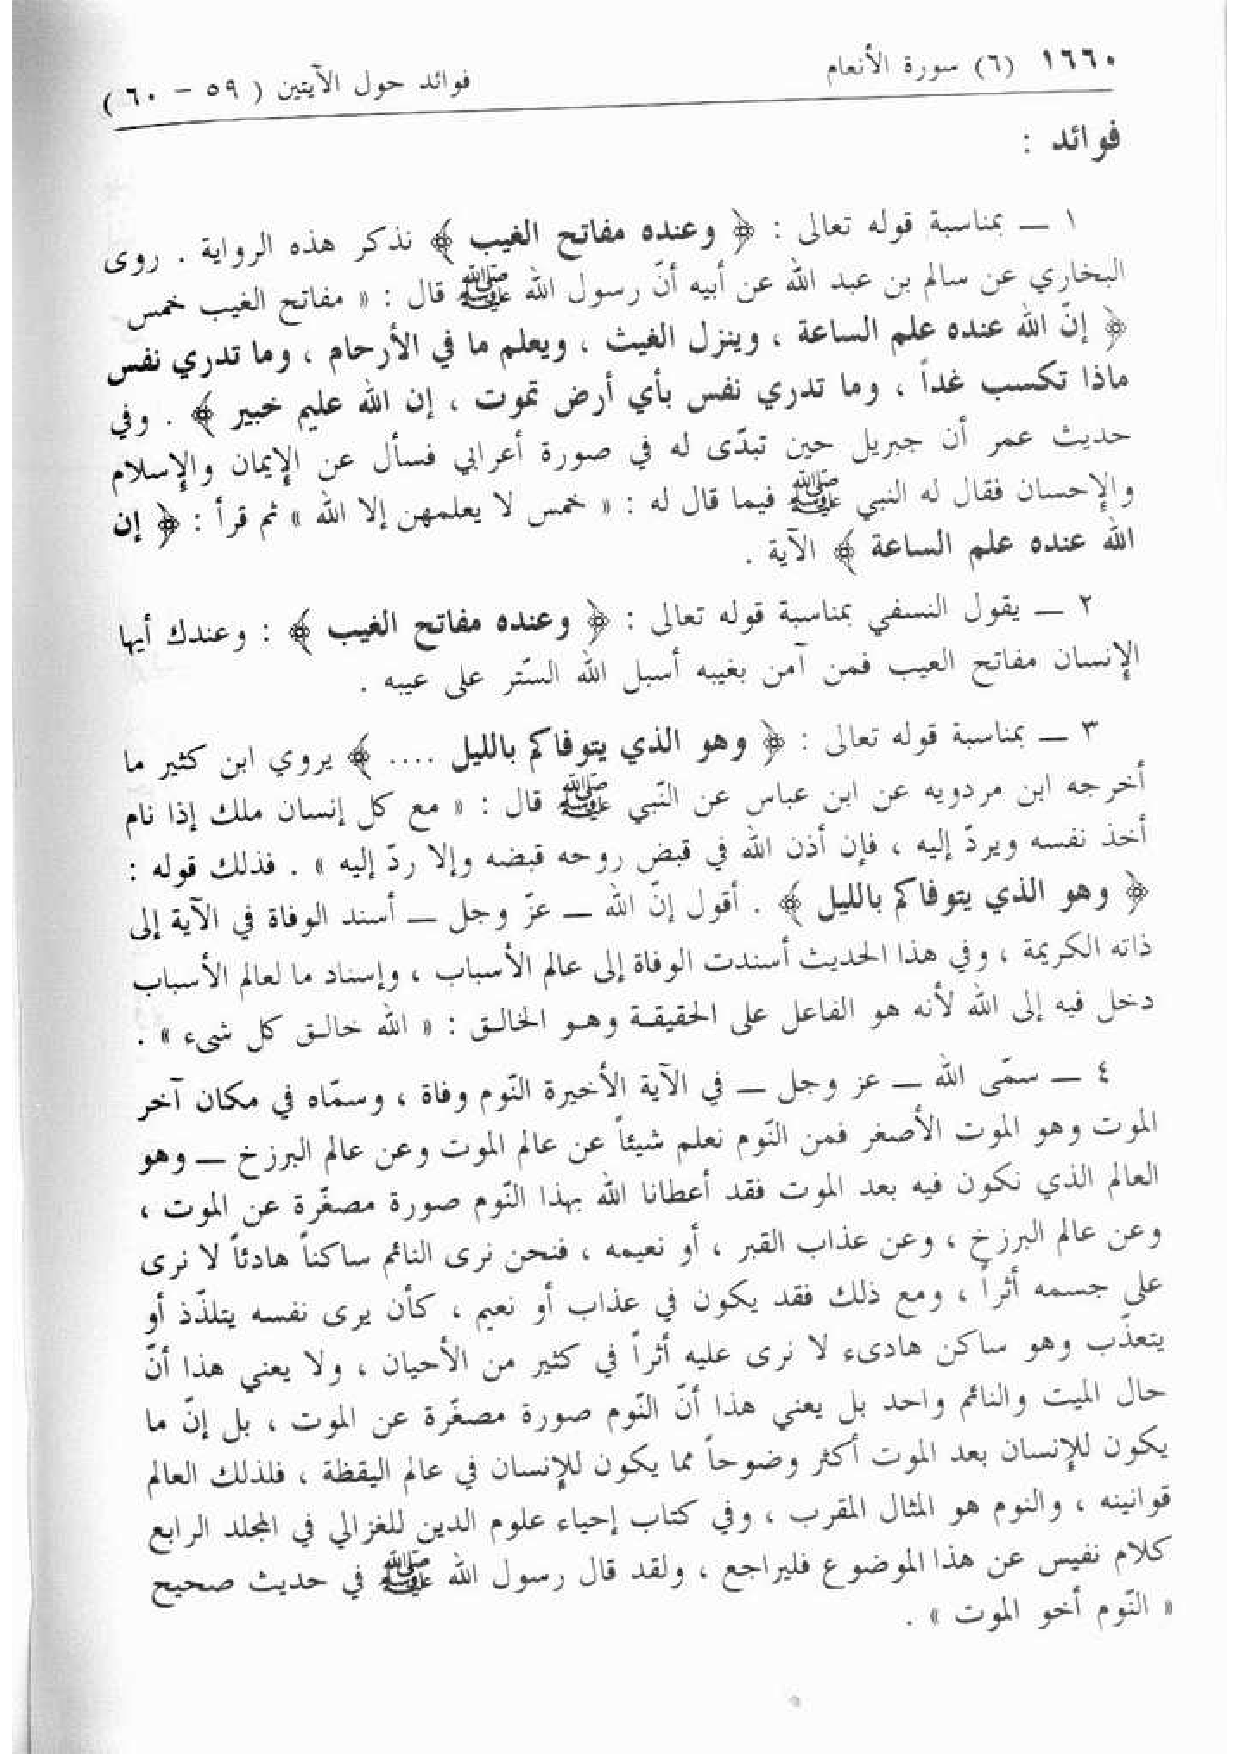 ١٦٦٠ (٦) سورة الأنعام فوائد حول الآيتين ( ٥٩ – ٦٠ )
فوائد :
١ ــ بمناسبة قوله تعالى : ﴿ وعنده مفاتح الغيب ﴾ نذكر هذه الرواية . روى
البخاري عن سالم بن عبد الله عن أبيه أنّ رسول الله ﷺ قال : « مفاتح الغيب خمس
﴿ إنّ الله عنده علم الساعة ، وينزل الغيث ، ويعلم ما في الأرحام ، وما تدري نفس
ماذا تكسب غداً ، وما تدري نفس بأي أرض تموت ، إن الله عليم خبير ﴾ . وفي
حديث عمر أن جبريل حين تبدّى له في صورة أعرابي فسأل عن الإيمان والإسلام
والإحسان فقال له النبي ﷺ فيما قال له : « خمس لا يعلمهن إلا الله » ثم قرأ : ﴿ إن
الله عنده علم الساعة ﴾ الآية .
٢ ــ يقول النسفي بمناسبة قوله تعالى : ﴿ وعنده مفاتح الغيب ﴾ : وعندك أيها
الإنسان مفاتح العيب فمن آمن بغيبه أسبل الله السّتر على عيبه .
٣ ــ بمناسبة قوله تعالى : ﴿ وهو الذي يتوفاكم بالليل .... ﴾ يروي ابن كثير ما
أخرجه ابن مردويه عن ابن عباس عن النّبي ﷺ قال : « مع كل إنسان ملك إذا نام
أخذ نفسه ويردّ إليه ، فإن أذن الله في قبض روحه قبضه وإلا ردّ إليه » . فذلك قوله :
﴿ وهو الذي يتوفاكم بالليل ﴾ . أقول إنّ الله ــ عزّ وجل ــ أسند الوفاة في الآية إلى
ذاته الكريمة ، وفي هذا الحديث أسندت الوفاة إلى عالم الأسباب ، وإسناد ما لعالم الأسباب
دخل فيه إلى الله لأنه هو الفاعل على الحقيقة وهو الخالق : « الله خالق كل شيء » .
٤ ــ سمّى الله ــ عز وجل ــ في الآية الأخيرة النّوم وفاة ، وسمّاه في مكان آخر
الموت وهو الموت الأصغر فمن النّوم نعلم شيئاً عن عالم الموت وعن عالم البرزخ ــ وهو
العالم الذي نكون فيه بعد الموت فقد أعطانا الله بهذا النّوم صورة مصغّرة عن الموت ،
وعن عالم البرزخ ، وعن عذاب القبر ، أو نعيمه ، فنحن نرى النائم ساكناً هادئاً لا نرى
على جسمه أثراً ، ومع ذلك فقد يكون في عذاب أو نعيم ، كأن يرى نفسه يتلذّذ أو
يتعذّب وهو ساكن هادىء لا نرى عليه أثراً في كثير من الأحيان ، ولا يعني هذا أنّ
حال الميت والنائم واحد بل يعني هذا أنّ النّوم صورة مصغّرة عن الموت ، بل إنّ ما
يكون للإنسان بعد الموت أكثر وضوحاً مما يكون للإنسان في عالم اليقظة ، فلذلك العالم
قوانينه ، والنوم هو المثال المقرب ، وفي كتاب إحياء علوم الدين للغزالي في المجلد الرابع
كلام نفيس عن هذا الموضوع فليراجع ، ولقد قال رسول الله ﷺ في حديث صحيح
« النّوم أخو الموت » .